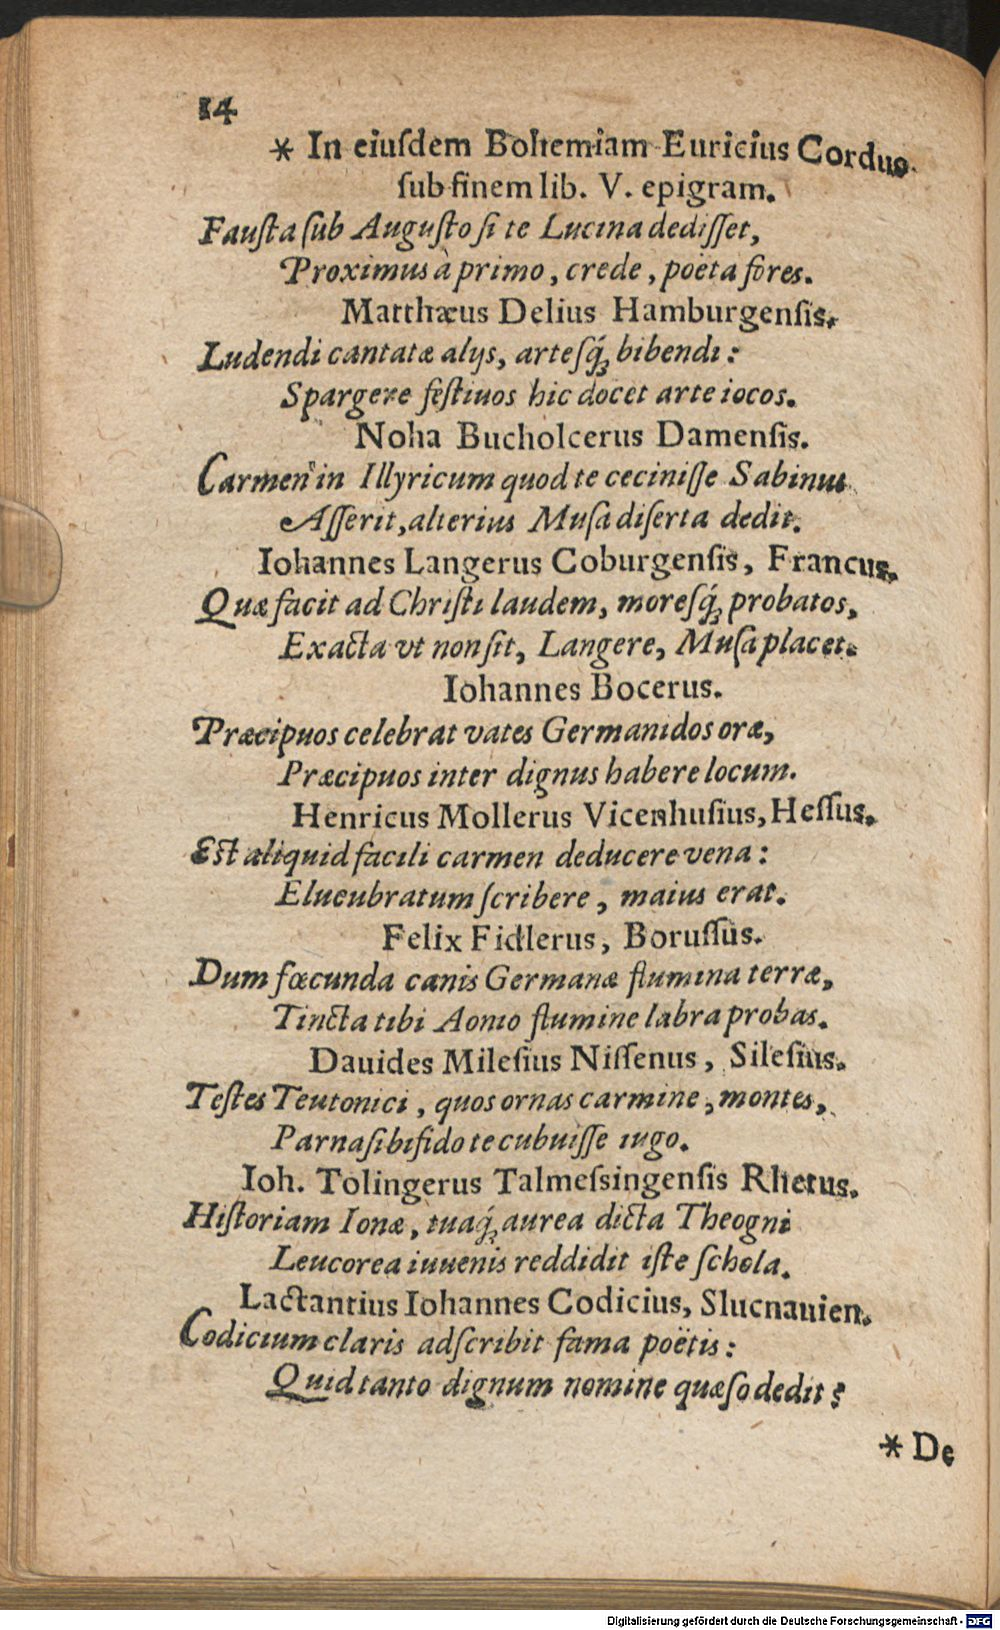 14
* In eiuſdem Bohemiam Euricius Cordus
ſub finem lib. V. epigram.
Fauſta ſub Auguſto ſi te Lucina dediſſet,
Proximus à primo, crede, poëta fores.
Matthæus Delius Hamburgenſis.
Ludendi cantatæ alijs, arteſq́; bibendi:
Spargere feſtiuos hic docet arte iocos.
Noha Bucholcerus Damenſis.
Carmen in Illyricum quod te ceciniſſe Sabinus
Aſſerit, alterius Muſa diſerta dedit.
Iohannes Langerus Coburgenſis, Francus.
Quæ facit ad Chriſti laudem, moreſq́; probatos,
Exacta vt non ſit, Langere, Muſa placet.
Iohannes Bocerus.
Præcipuos celebrat vates Germanidos oræ,
Præcipuos inter dignus habere locum.
Henricus Mollerus Vicenhuſius, Heſſus.
Est aliquid facili carmen deducere vena:
Elucubratum ſcribere, maius erat.
Felix Fidlerus, Boruſſus.
Dum fœcunda canis Germanæ flumina terræ,
Tincta tibi Aonio flumine labra probas.
Dauides Mileſius Niſſenus, Sileſius.
Teſtes Teutonici, quos ornas carmine, montes,
Parnaſi bifido te cubuiſſe iugo.
Ioh. Tolingerus Talmeſsingenſis Rhetus.
Hiſtoriam Ionæ, tuaq́; aurea dicta Theogni
Leucorea iuuenis reddidit iſte ſchola.
Lactantius Iohannes Codicius, Slucnauien.
Codicium claris adſcribit fama poëtis:
Quid tanto dignum nomine quæſo dedit?
* De
Digitalisierung gefördert durch die Deutsche Forschungsgemeinschaft - DFG